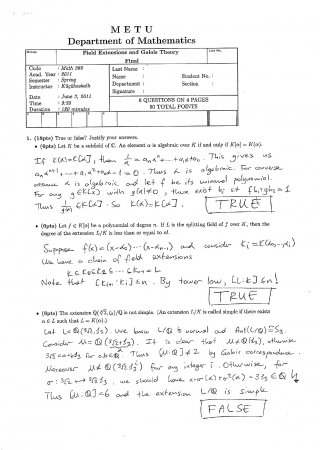 METU
Department of Mathematics
Group
Field Extensions and Galois Theory
List No.
Final
Code : Math 368
Acad. Year : 2011
Semester : Spring
Instructor : Küçüksakallı
Date : June 3, 2011
Time : 9:30
Duration : 120 minutes
Last Name :
Name : Student No. :
Department : Section :
Signature :
6 QUESTIONS ON 4 PAGES
80 TOTAL POINTS
1. (18pts) True or false? Justify your answers.
• (6pts) Let K be a subfield of C. An element α is algebraic over K if and only if K[α] = K(α).
If K(α)=K[α], then 1/α = aₙαⁿ+...+a₁α+a₀. This gives us
aₙαⁿ⁺¹+...+a₁α²+a₀α-1=0. Thus α is algebraic. For converse
assume α is algebraic and let f be its minimal polynomial.
For any g∈K[x] with g(α)≠0, there exist h₁ st fh₁+gh₂=1
Thus 1/g(α) ∈K[α]. So K(α)=K[α].
TRUE
• (6pts) Let f ∈ K[x] be a polynomial of degree n. If L is the splitting field of f over K, then the
degree of the extension L/K is less than or equal to n!.
Suppose f(x)=(x-α₀)...(x-αₙ₋₁) and consider Kᵢ=K(α₀,...,αᵢ)
We have a chain of field extensions
K⊆K₀⊆K₁⊆...⊆Kₙ₋₁=L
Note that [Kᵢ₊₁:Kᵢ]≤n. By tower law, [L:K]≤n!
TRUE
• (6pts) The extension Q(∛2, ζ₃)/Q is not simple. (An extension L/K is called simple if there exists
α ∈ L such that L = K(α).)
Let L=Q(∛2,ζ₃). We know L/Q is normal and Aut(L/Q)≅S₃.
Consider M=Q(∛2+ζ₃). It is clear that M≠Q(ζ₃), otherwise
∛2=a+bζ₃ for a,b∈Q. Thus [M:Q]≠2 by Galois correspondence.
Moreover M≠Q(∛2ζ₃ⁱ) for any integer i. Otherwise, for
Thus [M:Q]=6 and the extension L/Q is simple
FALSE